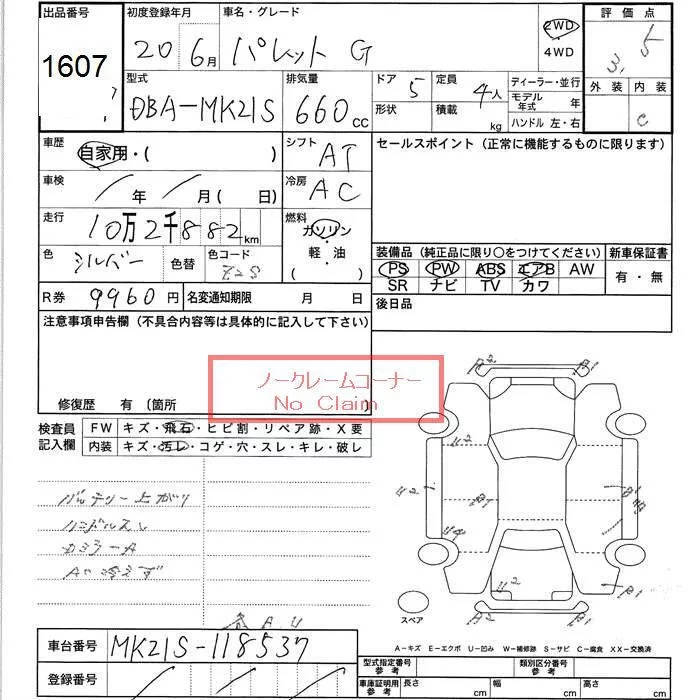 出品番号
1607
初度登録年月
20年6月
車名・グレード
パレット G
2WD
4WD
評価点
3.5
外装 内装
C
型式
DBA-MK21S
排気量
660 cc
ドア 5
形状
定員 4人
積載 kg
ディーラー・並行
モデル年式 年
ハンドル 左・右
車歴
自家用・( )
シフト
AT
車検
年 月 (日)
冷房
AC
走行
10万2千882 km
燃料
ガソリン
軽・油
( )
色
シルバー
色替
色コード
Z2S
R券 9960円
名変通知期限 月 日
セールスポイント (正常に機能するものに限ります)
装備品 (純正品に限り〇をつけてください)
PS PW ABS エアB AW
SR ナビ TV カワ
新車保証書
有・無
後日品
注意事項申告欄 (不具合内容等は具体的に記入して下さい)
ノークレームコーナー
No Claim
修復歴 有 〔箇所
検査員記入欄
FW キズ・飛石・ヒビ割・リペア跡・X要
内装 キズ・汚レ・コゲ・穴・スレ・キレ・破レ
バッテリー上がり
ハンドルスレ
カミラーA
AC冷えず
A2 B1
U2
U2 B1 B1
U4
U2
A2 B1
スペア
A-キズ E-エクボ U-凹み W-補修跡 S-サビ C-腐食 XX-交換済
車台番号 MK21S-118537
登録番号
型式指定番号参考
類別区分番号参考
車庫証明用参考
長さ cm 幅 cm 高さ cm